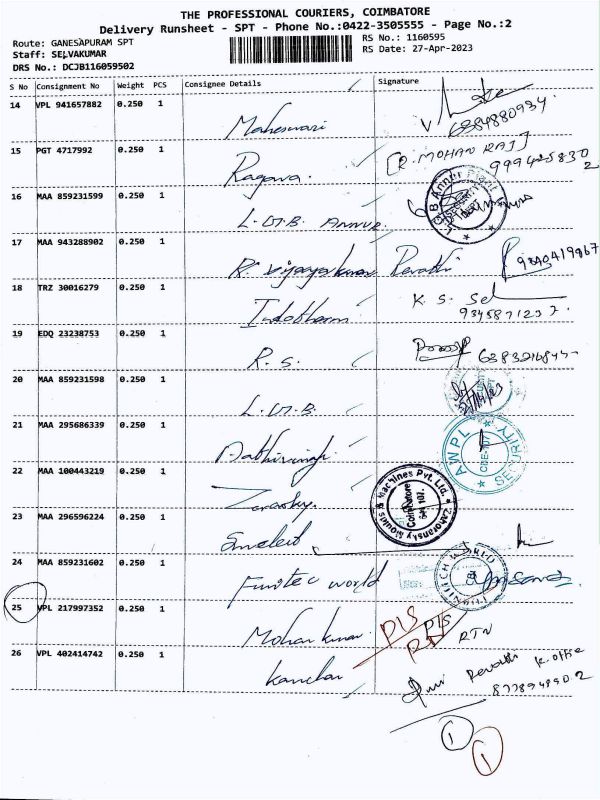 THE PROFESSIONAL COURIERS, COIMBATORE
Delivery Runsheet - SPT - Phone No.:0422-3505555 - Page No.:2
Route: GANESAPURAM SPT
RS No.: 1160595
Staff: SELVAKUMAR
RS Date: 27-Apr-2023
DRS No.: DCJB116059502
S No Consignment No Weight PCS Consignee Details Signature
14 VPL 941657882 0.250 1 Maheswari
15 PGT 4717992 0.250 1 Ragava. [R. MOHAN RAJ]
16 MAA 859231599 0.250 1 L.G.B. ANNUR.
17 MAA 943288902 0.250 1 R. Vijayakumar Revathi
18 TRZ 30016279 0.250 1 Indotherm K. S. Sel
19 EDQ 23238753 0.250 1 R.S.
20 MAA 859231598 0.250 1 L.G.B.
21 MAA 295686339 0.250 1 AWPL SECURITY
22 MAA 100443219 0.250 1 Zahoransky Moulds & Machines Pvt. Ltd. Coimbatore
23 MAA 296596224 0.250 1
24 MAA 859231602 0.250 1 world
25 VPL 217997352 0.250 1 Mohan kumar. DIS DIS RTN
26 VPL 402414742 0.250 1 Kanchan Revathi K. office
8778948902
1 1